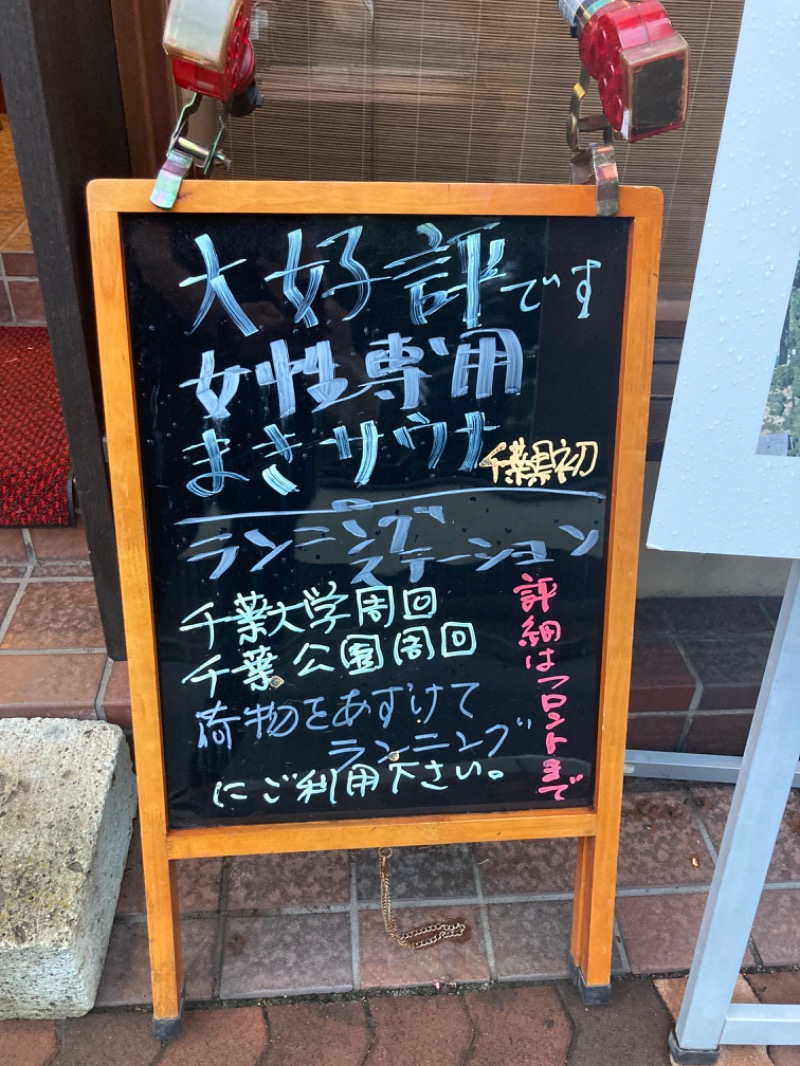 大好評です
女性専用
まきサウナ
千葉県初
ランニング
ステーション
千葉大学周回
千葉公園周回
荷物をあずけて
ランニング
にご利用下さい。
評細はフロントまで